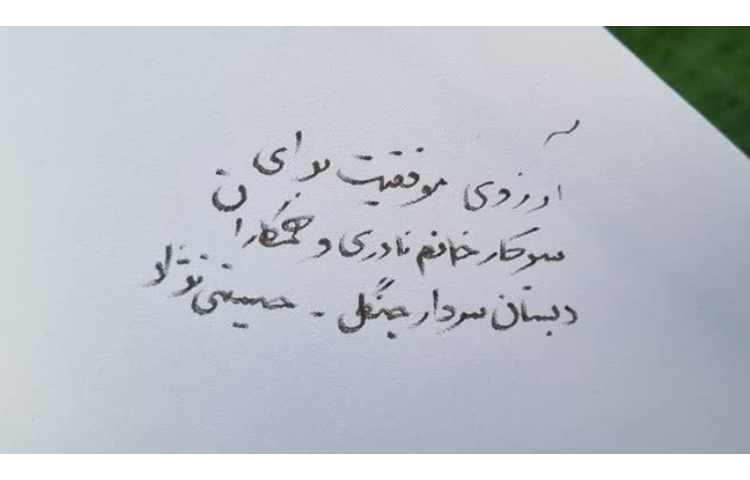 آرزوی موفقیت برای
سرکار خانم نادری و همکاران
دبستان سردار جنگل - حسینی نژاد